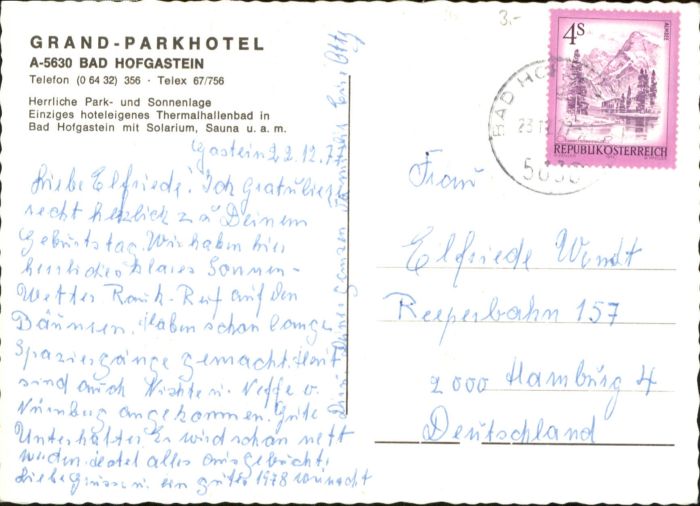 3.-
GRAND-PARKHOTEL
A-5630 BAD HOFGASTEIN
Telefon (0 64 32) 356 · Telex 67/756
Herrliche Park- und Sonnenlage
Einziges hoteleigenes Thermalhallenbad in
Bad Hofgastein mit Solarium, Sauna u. a. m.
Gastein 22.12.77
Liebe Elfriede! Ich Gratuliere
recht herzlich zu Deinem
Geburtstag. Wir haben hier
herrliches klares Sonnen-
Wetter Rauh-Reif auf den
Bäumen. Haben schon lange
Spaziergänge gemacht. Heut
sind auch Nichte u. Neffe v.
Nürnberg angekommen. Gute
Unterhalter. Es wird schon nett
werden. Hotel alles ausgebucht.
Liebe Grüsse u. ein gutes 1978 wünscht
Dir Deiner ganzen Familie
4S
ALMSEE
REPUBLIK ÖSTERREICH
BAD HOF
5630
Frau
Elfriede Wendt
Reeperbahn 157
2000 Hamburg 4
Deutschland